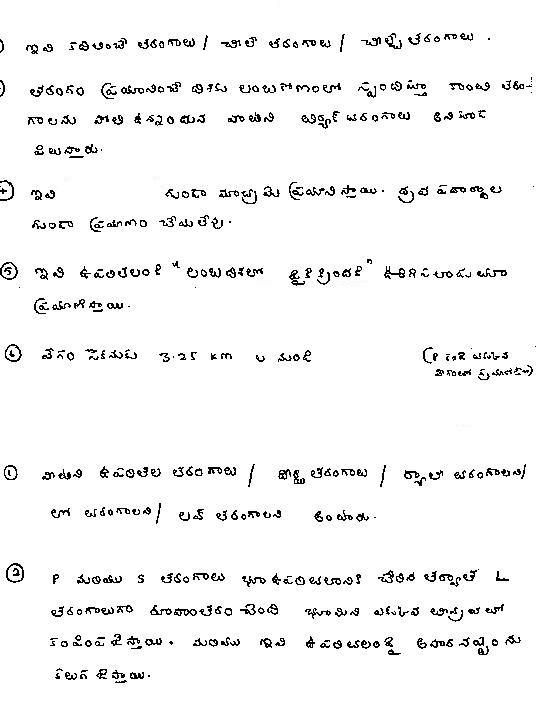 ఇవి కదిలించే తరంగాలు / చాలే తరంగాలు / తరంగాలు .
తరంగం ప్రయాణించే దిశకు లంబకోణంలో స్పందిస్తూ కాంతి తరం-
గాలను పోలి ఉన్నందున వాటిని తిర్యక్ తరంగాలు అని కూడా
పిలుస్తారు.
4 ఇవి గుండా మాత్రమే ప్రయాణిస్తాయి. ద్రవ పదార్థాల
గుండా ప్రయాణం చేయలేవు.
⑤ ఇవి ఉపరితలంకి "లంబదిశలో పైకిక్రిందకి" ఊగిసలాడుతూ
ప్రయాణిస్తాయి.
⑥ వేగం సెకనుకు 3.25 km ల నుండి (P కంటే తక్కువ
వేగంలో ప్రయాణం)
① వాటిని ఉపరితల తరంగాలు / తరంగాలు / ర్యాలీ తరంగాలని/
లాంగ్ తరంగాలని/ లవ్ తరంగాలని అంటారు.
② P మరియు S తరంగాలు భూఉపరితలానికి చేరిన తర్వాత L
తరంగాలుగా రూపాంతరం చెంది భూమిని ఎక్కువ తీవ్రతతో
కంపింపజేస్తాయి. మరియు ఇవి ఉపరితలంపై అపారనష్టంను
కలుగజేస్తాయి.